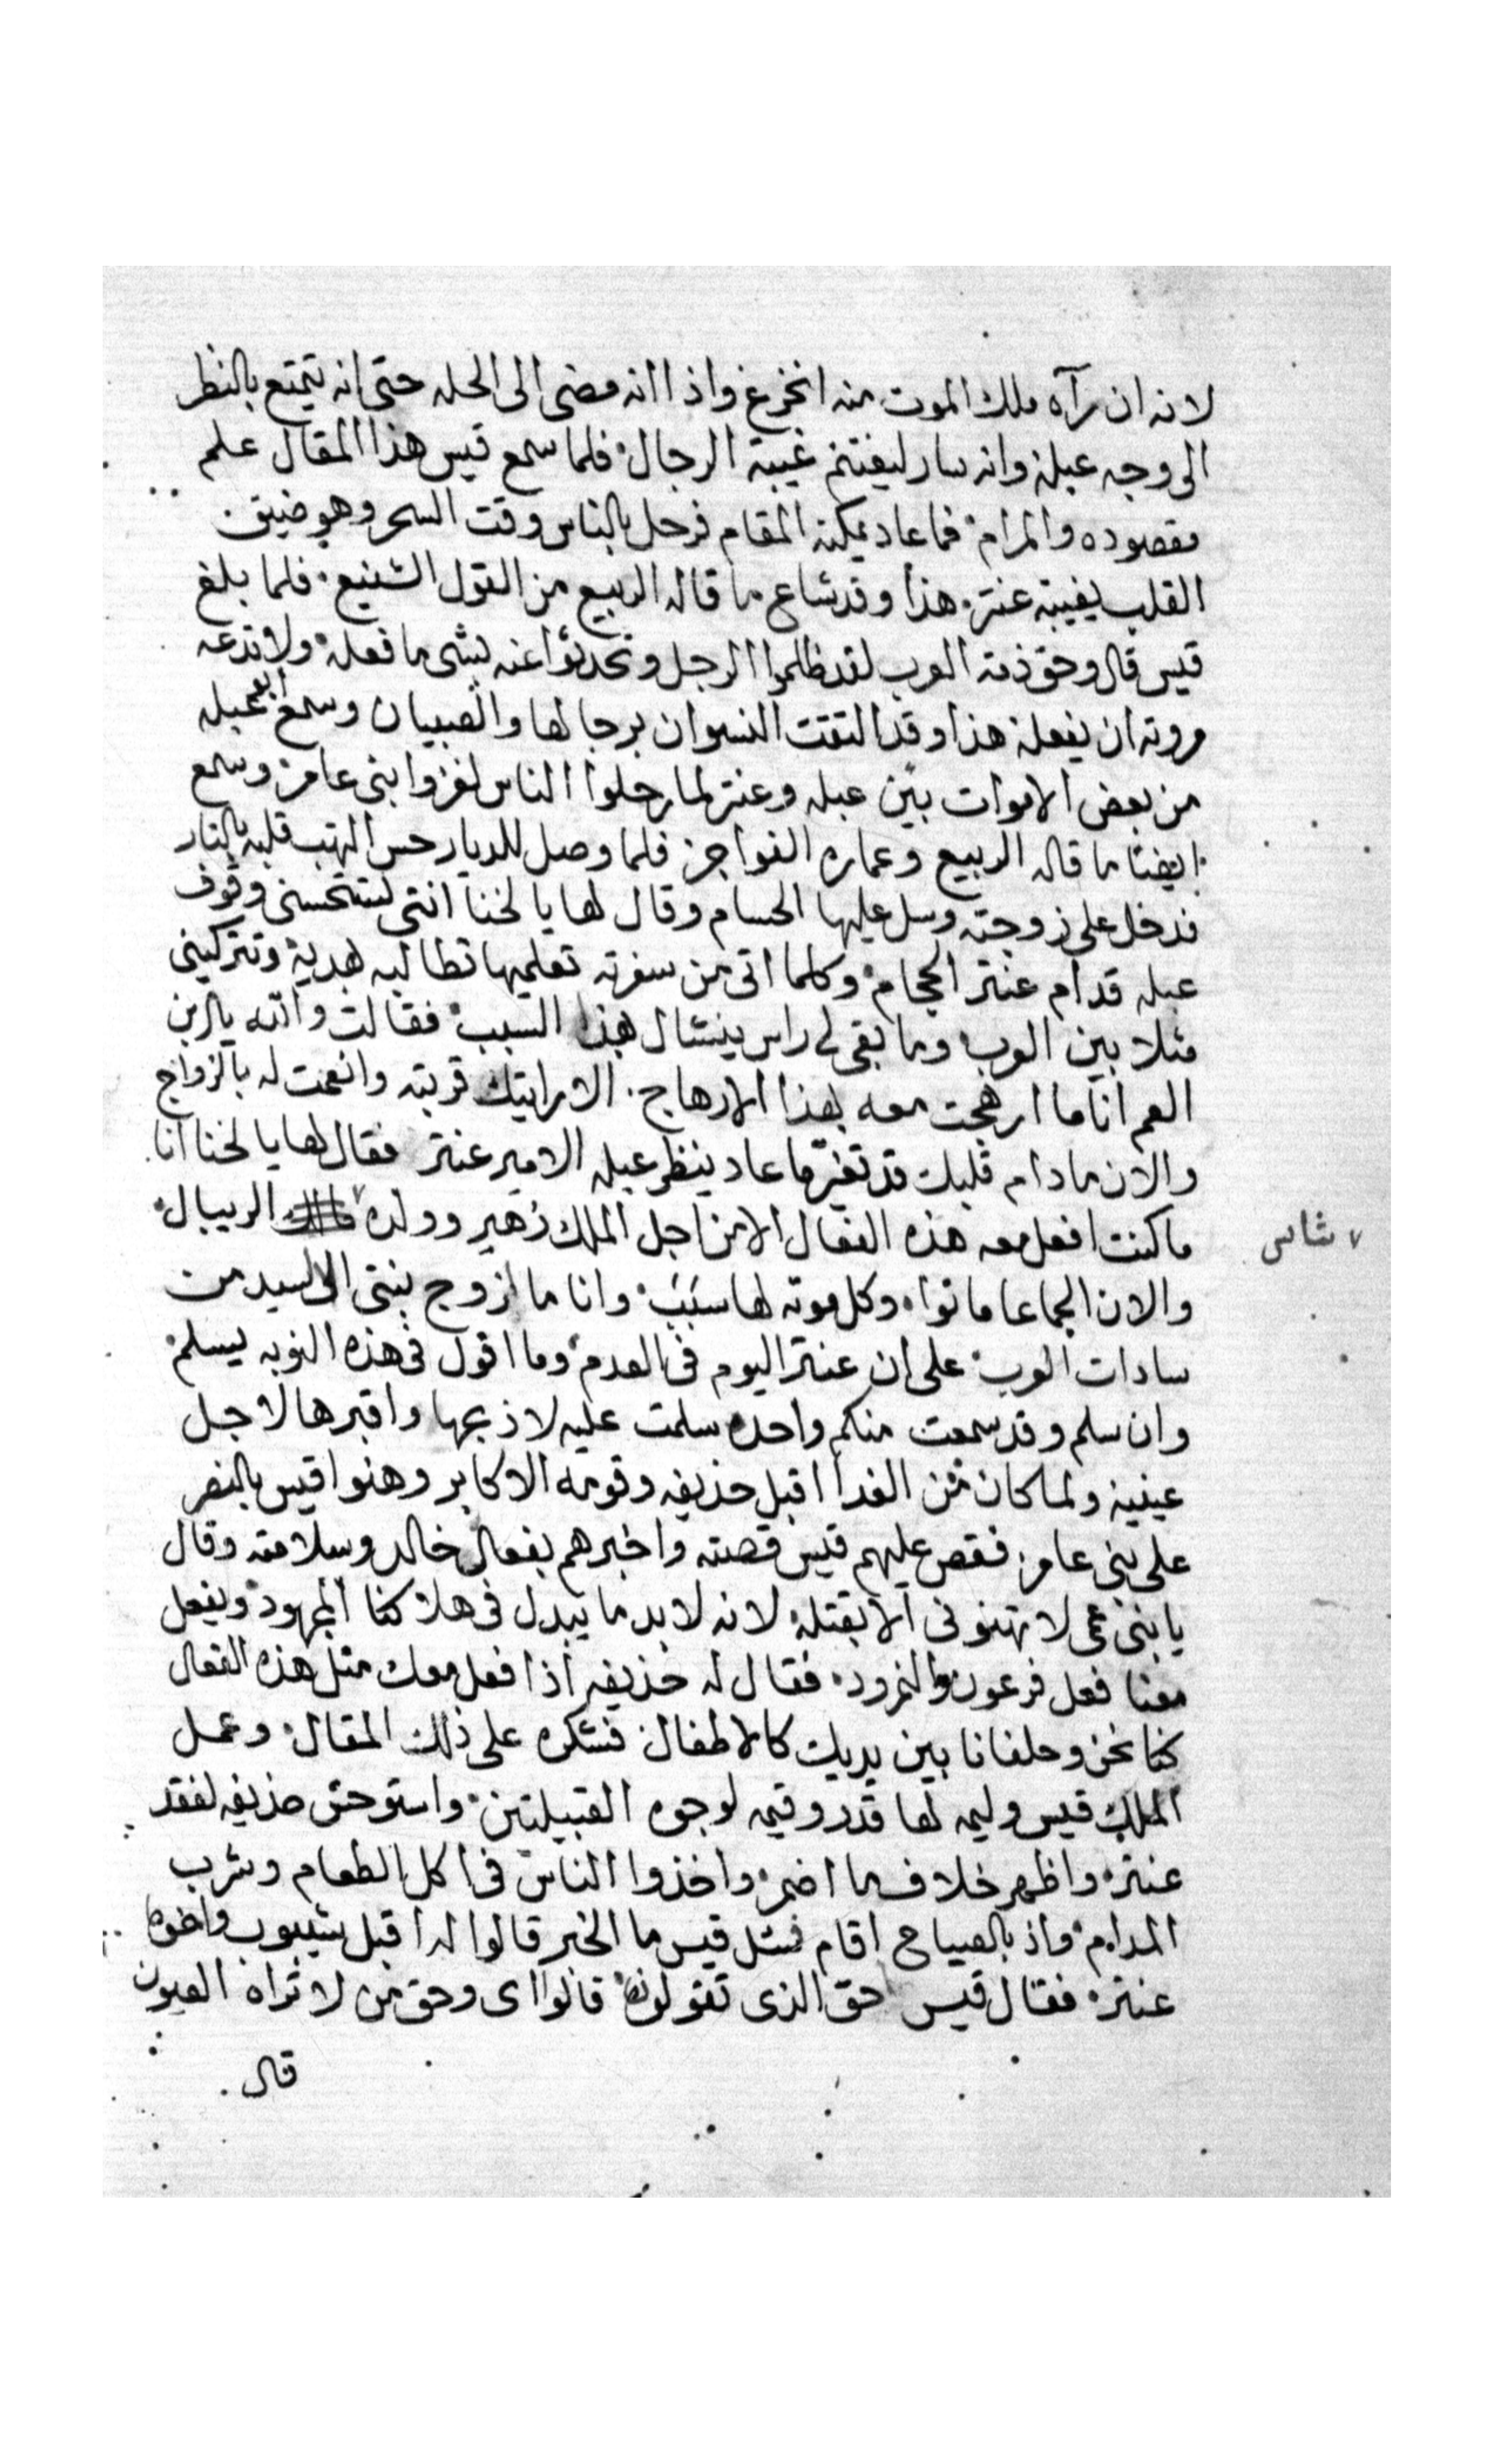 لانه ان رآه ملك الموت منه انخرع واذا انه مضى الى الحله حتى انه يتمتع بالنظر
الى وجه عبله وانه سار ليغتنم غيبة الرجال فلما سمع قيس هذا المقال علم
مقصوده والمرام فما عاد يمكنه المقام فرحل بالناس وقت السحر وهو ضيق
القلب بغيبة عنتر هذا وقد شاع ما قاله الربيع من القول الشنيع فلما بلغ
قيس قال وحق ذمة العرب لقد ظلموا الرجل وتحدثوا عنه بشى ما فعله ولا تدعه
مروته ان يفعله هذا وقد التقت النسوان برجالها والصبيان وسمع ابو عبله
من بعض الاموات بين عبله وعنتر لما رحلوا الناس لغزوا بنى عامر وسمع
ايضا ما قاله الربيع وعماره الفواجر فلما وصل للديار حس التهب قلبه بالنار
فدخل على زوجته وسل عليها الحسام وقال لها يا لخنا انتى تستحسنى وقوف
عبله قدام عنتر الحجام وكلما اتى من سفرته تعلميها تطالبه هدية وتتركينى
مثلا بين العرب وما بقى لى راس ينشال بهذا السبب فقالت والله يا ابن
العم انا ما ارهجت معه بهذا الارهاج الا رايتك قربته وانعمت له بالزواج
والان مادام قلبك قد تغير ما عاد ينظر عبله الامير عنتر فقال لها يا لخنا انا
ما كنت افعل معه هذه الفعال الا من اجل الملك زهير وولده الريبال
٧ شاس
والان الجماعا ماتوا وكل موته لها سبب وانا ما ازوج بنتى الا لسيد من
سادات العرب على ان عنتر اليوم فى العدم وما اقول فى هذه النوبه يسلم
وان سلم وقد سمعت منكم واحده سلمت عليه لاذبحها واقبرها لاجل
عينيه ولما كان من الغدا اقبل حذيفه وقومه الاكابر وهنوا قيس بالنصر
على بنى عامر فقص عليهم قيس قصته واخبرهم بفعال خالد وسلامته وقال
يا بنى عمى لا تهنونى الا بقتله لانه لا بد ما يبدل فى هلاكنا المجهود ويفعل
معنا فعل فرعون والنمرود فقال له حذيفه اذا فعل معك مثل هذه الفعال
كنا نحن وحلفانا بين يديك كالاطفال فشكره على ذلك المقال وعمل
الملك قيس وليمه لها قدر وقيمه لوجوه القبيلتين واستوحش حذيفه لفقد
عنتر واظهر خلاف ما اضمر واخذوا الناس فى اكل الطعام وشرب
المدام واذ بالصياح اقام فسئل قيس ما الخبر قالوا له اقبل شيبوب واخوه
عنتر فقال قيس حق الذى تقولونه قالوا اى وحق من لا تراه العيون
قال